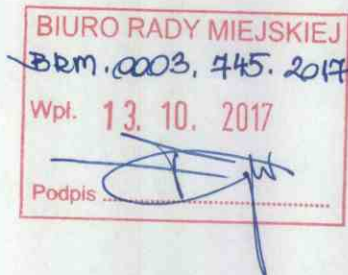 BIURO RADY MIEJSKIEJ
BRM.0003.745.2017
Wpł. 13. 10. 2017
Podpis ..............................